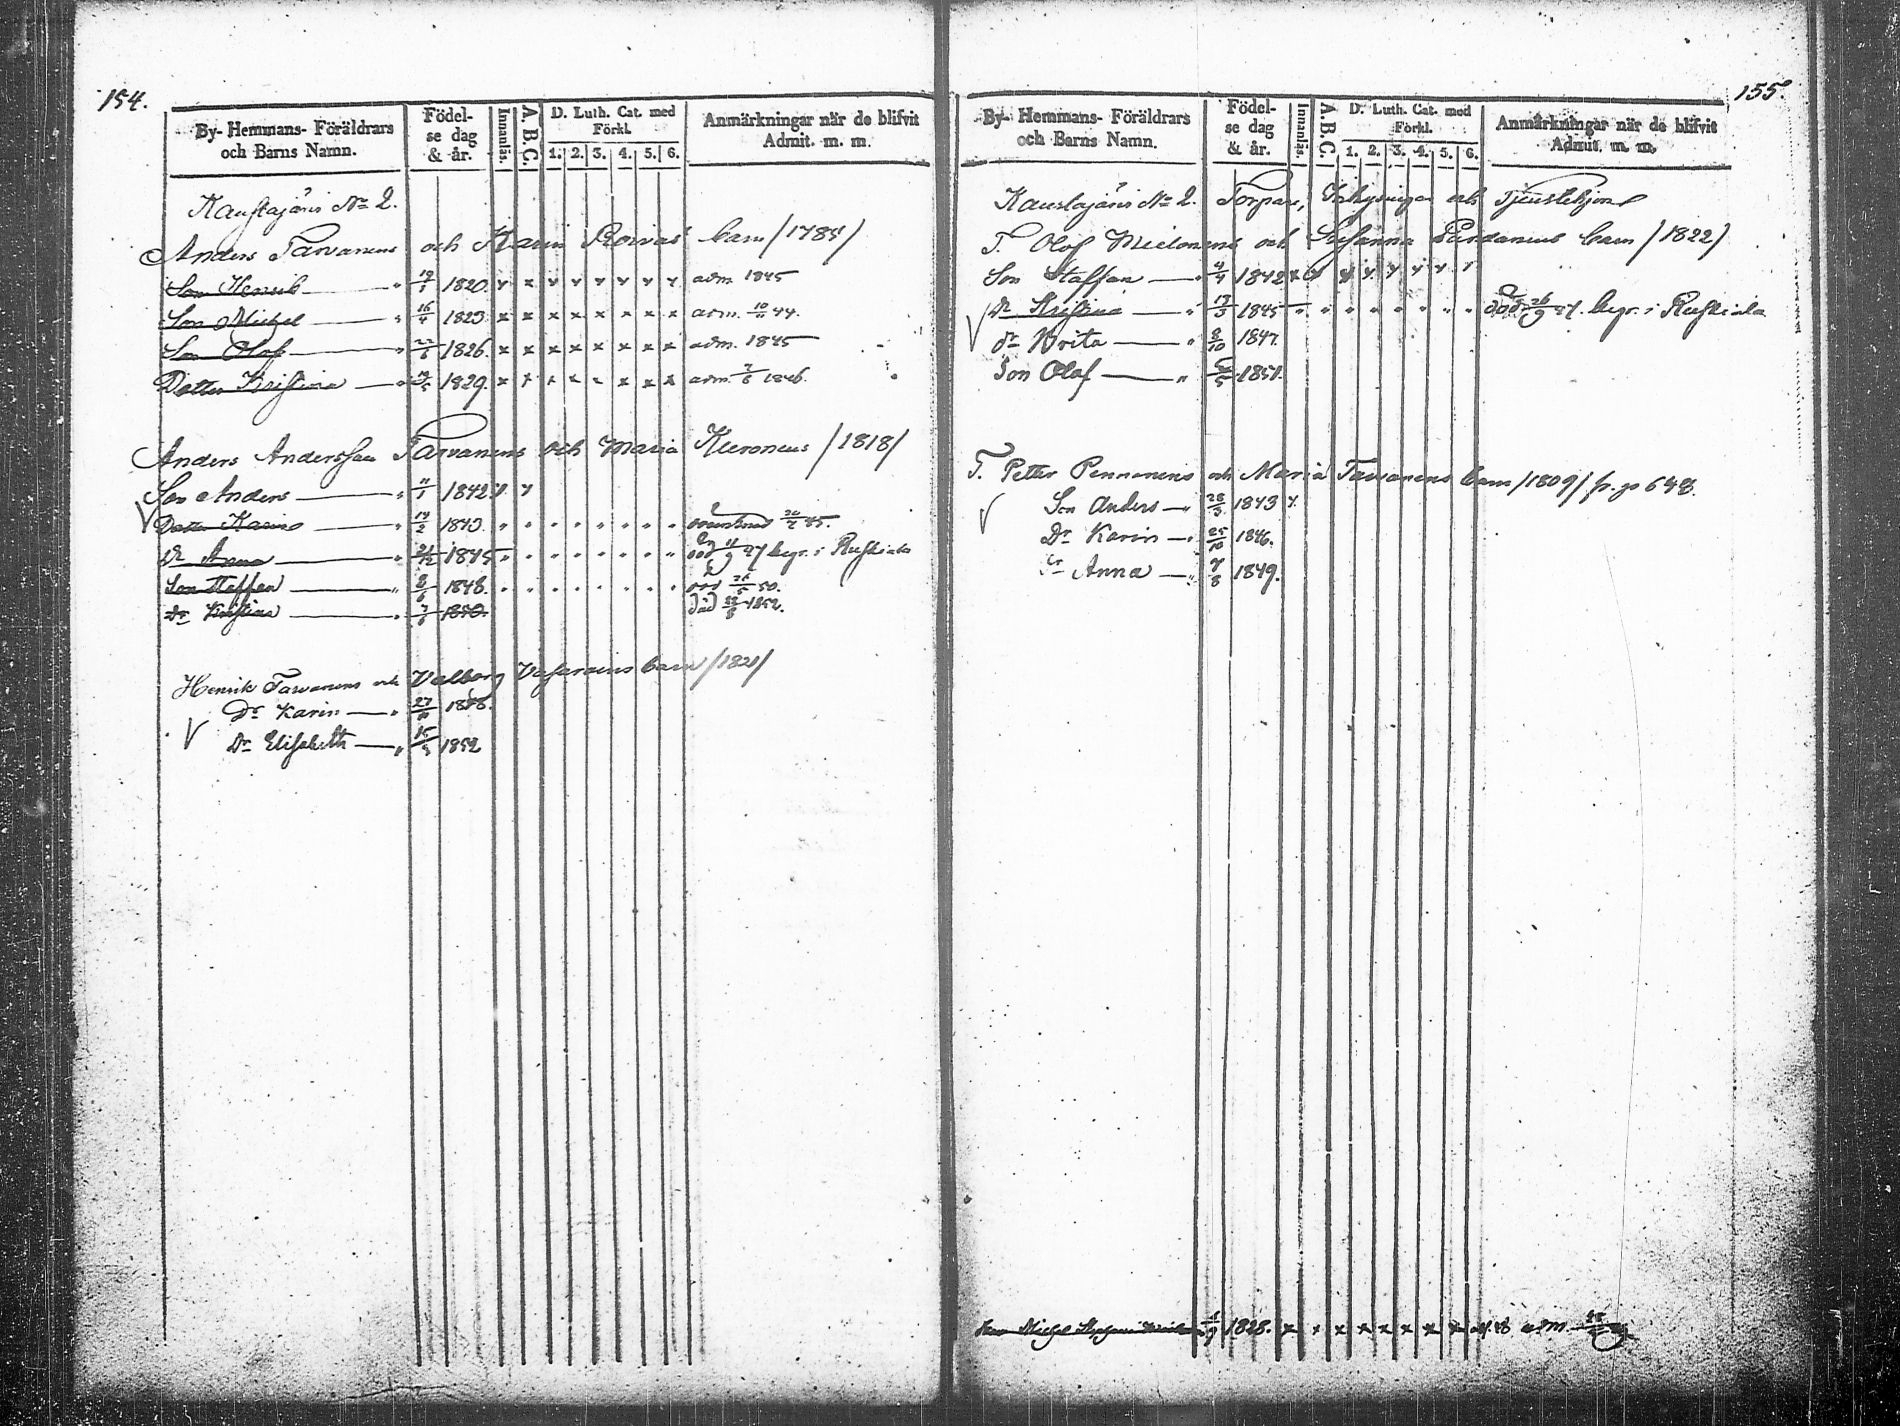 154.
By- Hemmans- Föräldrars och Barns Namn.
Födelse dag & år.
Innanläs.
A. B. C.
D. Luth. Cat. med Förkl.
1. 2. 3. 4. 5. 6.
Anmärkningar när de blifvit Admit. m. m.
Kaustajärvi No 2.
Anders Tarvanens och Karin barn /1785/
Son Henrik 1820. x x x x x x x x adm. 1845
Son Michel 16/4 1823. x x x x x x x x adm. 44.
Son Olof 1826. x x x x x x x x adm. 1845
Dotter Kristina 1829. x x x x x x x x adm. 1846.
Anders Andersson Tarvanens och Maria /1818/
Son Anders 1842. x x
Dotter Karin 1843.
Dr Anna 1845 död begr. i Ruskiala
Son Staffan 1848. död 50.
Dr Kristina 1850. död 1852.
Henrik Tarvanens och Valborg barn /1821/
Dr Karin 1848.
Dr Elisabeth 1852
155.
By- Hemmans- Föräldrars och Barns Namn.
Födelse dag & år.
Innanläs.
A. B. C.
D. Luth. Cat. med Förkl.
1. 2. 3. 4. 5. 6.
Anmärkningar när de blifvit Admit. m. m.
Kaustajärvi No 2. Torpare, Inhysingar och Tjenstehjon
T. Olof Mielonens och Susanna barn /1822/
Son Staffan 4/4 1842 x x x x x x x
Dr Kristina 1845 död begr. i Ruskiala
Dr Brita 8/10 1847.
Son Olof 1851.
T. Petter Pennanens och Maria Tarvanens barn /1809/ fr. p. 648.
Son Anders 1843 x
Dr Karin 25/10 1846.
Dr Anna 7/8 1849.
Michel 1828. x x x x x x x adm.